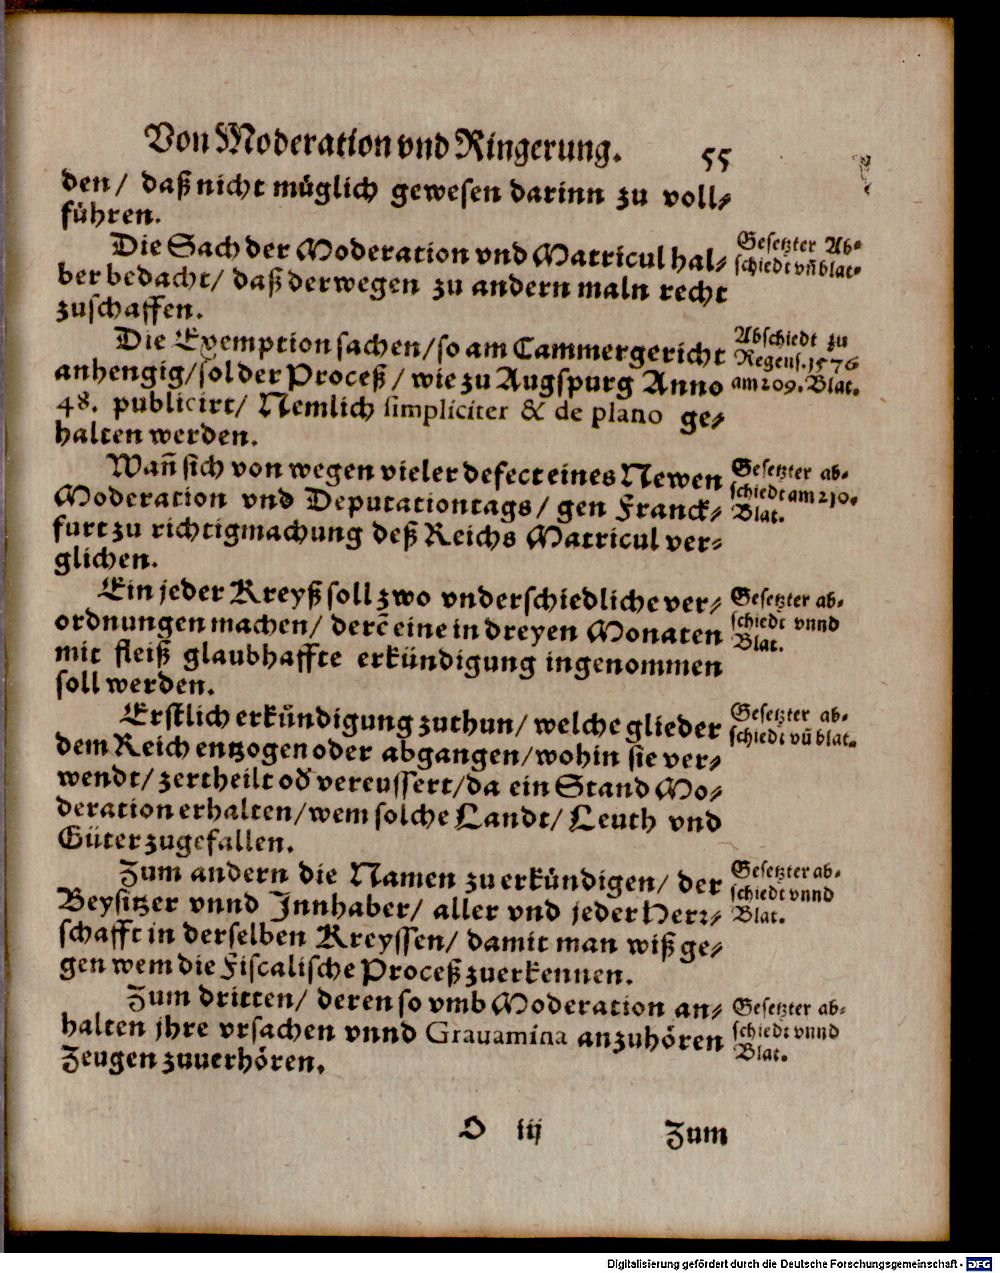 Von Moderation vnd Ringerung. 55
den/ daß nicht müglich gewesen darinn zu voll⸗
führen.
Die Sach der Moderation vnd Matricul hal⸗
ber bedacht/ daß derwegen zu andern maln recht
zuschaffen.
Gesetzter Ab⸗
schiedt vñ blat.
Die Exemption sachen/ so am Cammergericht
anhengig/ sol der Proceß/ wie zu Augspurg Anno
48. publicirt/ Nemlich simpliciter & de plano ge⸗
halten werden.
Abschiedt zu
Regens. 1576
am 209. Blat.
Wañ sich von wegen vieler defect eines Newen
Moderation vnd Deputationtags/ gen Franck⸗
furt zu richtigmachung deß Reichs Matricul ver⸗
glichen.
Gesetzter ab⸗
schiedt am 210.
Blat.
Ein jeder Kreyß soll zwo vnderschiedliche ver⸗
ordnungen machen/ derē eine in dreyen Monaten
mit fleiß glaubhaffte erkündigung ingenommen
soll werden.
Gesetzter ab⸗
schiedt vnnd
Blat.
Erstlich erkündigung zuthun/ welche glieder
dem Reich entzogen oder abgangen/ wohin sie ver⸗
wendt/ zertheilt od̛ vereussert/ da ein Stand Mo⸗
deration erhalten/ wem solche Landt/ Leuth vnd
Güter zugefallen.
Gesetzter ab⸗
schiedt vñ blat.
Zum andern die Namen zu erkündigen/ der
Beysitzer vnnd Innhaber/ aller vnd jeder Herr⸗
schafft in derselben Kreyssen/ damit man wiß ge⸗
gen wem die Fiscalische Proceß zuerkennen.
Gesetzter ab⸗
schiedt vnnd
Blat.
Zum dritten/ deren so vmb Moderation an⸗
halten jhre vrsachen vnnd Grauamina anzuhören
Zeugen zuuerhören.
Gesetzter ab⸗
schiedt vnnd
Blat.
O iij Zum
Digitalisierung gefördert durch die Deutsche Forschungsgemeinschaft - DFG